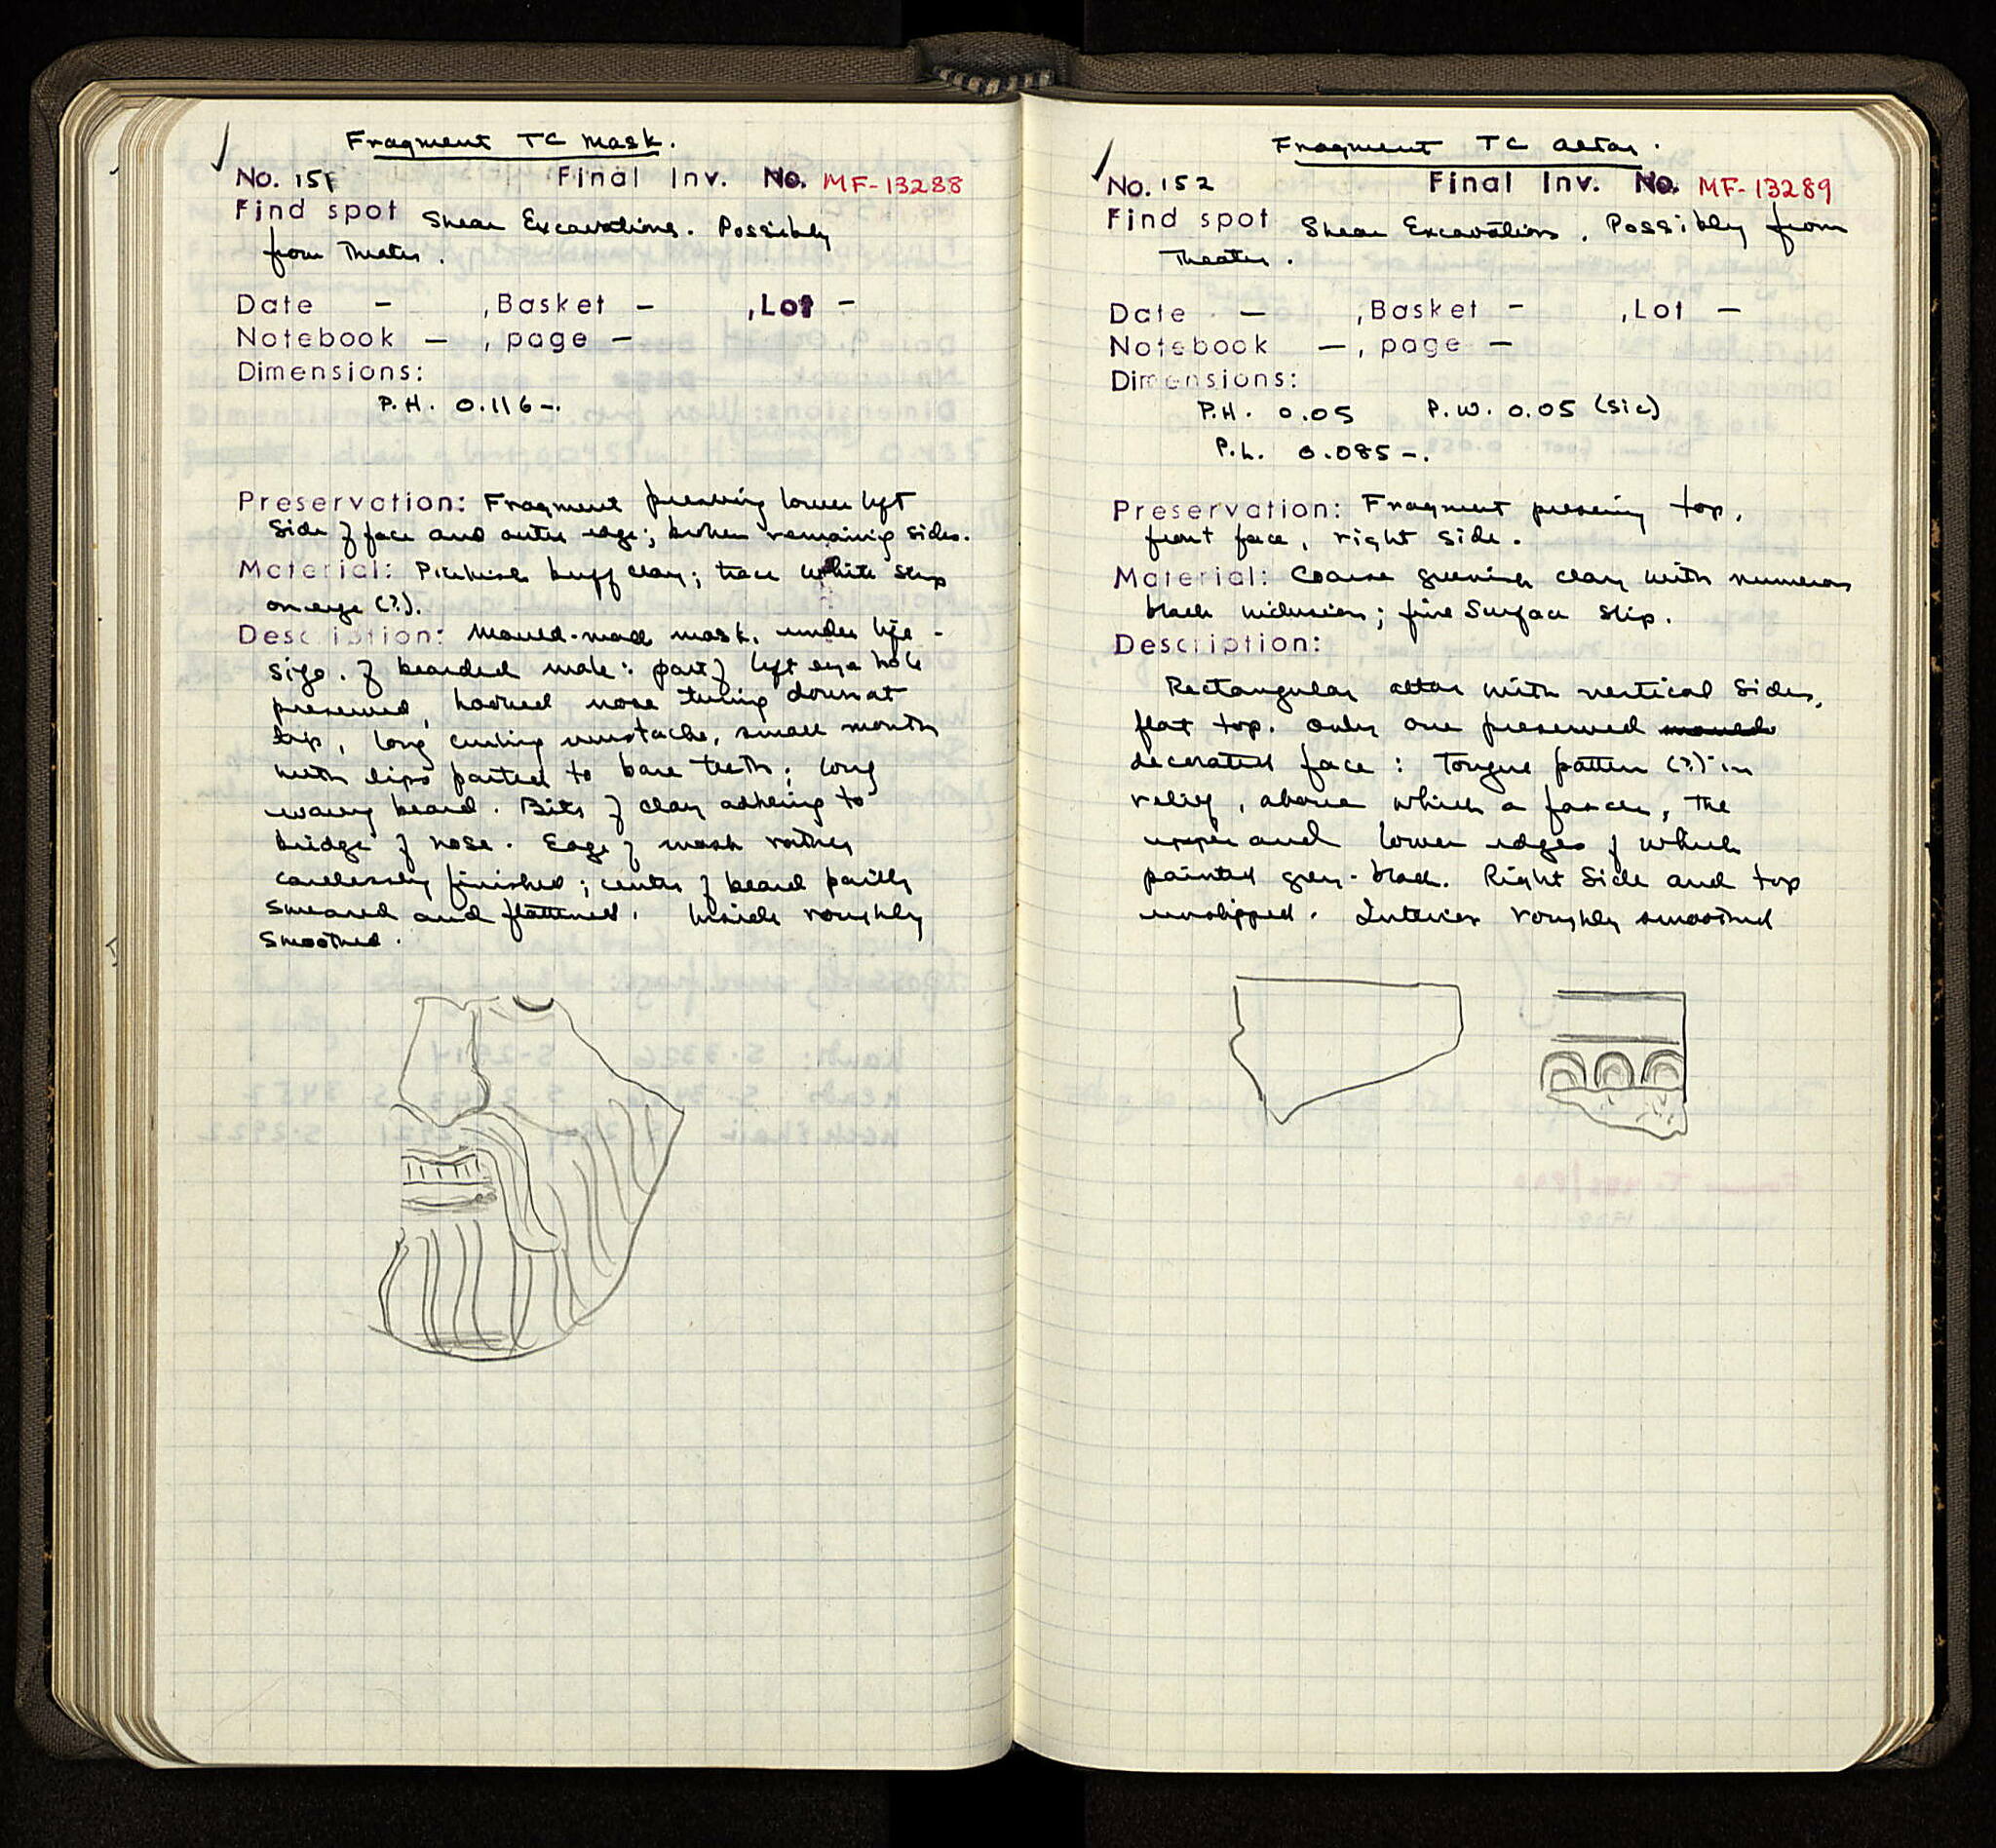 Fragment TC Mask.
No. 151 Final Inv. No. MF-13288
Find spot Shear Excavations. Possibly
from Theater.
Date - , Basket - , Lot -
Notebook - , page -
Dimensions:
P.H. 0.116-.
Preservation: Fragment preserving lower left
side of face and outer edge; broken remaining sides.
Material: Pinkish buff clay; trace white slip
on eye (?).
Description: Mould-made mask, under life-
size, of bearded male: part of left eye hole
preserved, hooked nose turning down at
tip, long curling mustache, small mouth
with lips parted to bare teeth; long
wavy beard. Bits of clay adhering to
bridge of nose. Edge of mask rather
carelessly finished; center of beard partly
smeared and flattened. Inside roughly
smoothed.
Fragment TC altar.
No. 152 Final Inv. No. MF-13289
Find spot Shear Excavations, Possibly from
Theater.
Date - , Basket - , Lot -
Notebook - , page -
Dimensions:
P.H. 0.05 P.W. 0.05 (sic)
P.L. 0.085-.
Preservation: Fragment preserving top,
front face, right side.
Material: Coarse greenish clay with numerous
black inclusions; fine surface slip.
Description:
Rectangular altar with vertical sides,
flat top. Only one preserved mould
decorated face: Tongue pattern (?) in
relief, above which a fascia, the
upper and lower edges of which
painted grey-black. Right side and top
unslipped. Interior roughly smoothed